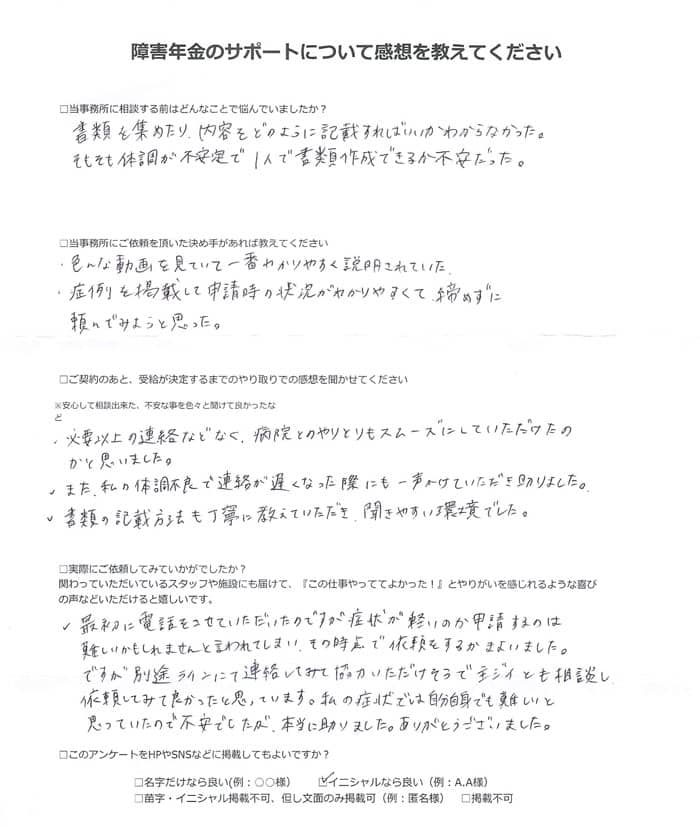 障害年金のサポートについて感想を教えてください
□当事務所に相談する前はどんなことで悩んでいましたか？
書類を集めたり、内容をどのように記載すればいいかわからなかった。
そもそも体調が不安定で1人で書類作成できるか不安だった。
□当事務所にご依頼を頂いた決め手があれば教えてください
・色んな動画を見ていて一番わかりやすく説明されていた。
・症例を掲載して申請時の状況がわかりやすくて、締めずに
頼んでみようと思った。
□ご契約のあと、受給が決定するまでのやり取りでの感想を聞かせてください
※安心して相談出来た、不安な事を色々と聞けて良かったな
ど
✓必要以上の連絡などなく、病院とのやりとりもスムーズにしていただけたの
かと思いました。
✓また、私の体調不良で連絡が遅くなった際にも一声かけていただき助りました。
✓書類の記載方法も丁寧に教えていただき、聞きやすい環境でした。
□実際にご依頼してみていかがでしたか？
関わっていただいているスタッフや施設にも届けて、『この仕事やっててよかった！』とやりがいを感じれるような喜び
の声などいただけると嬉しいです。
✓最初に電話をさせていただいたのですが症状が軽いのか申請するのは
難しいかもしれませんと言われてしまい、その時点で依頼をするかまよいました。
ですが別途ラインにて連絡してみて協力いただけそうで主ジイとも相談し
依頼してみて良かったと思っています。私の症状では自分自身でも難しいと
思っていたので不安でしたが、本当に助りました。ありがとうございました。
□このアンケートをHPやSNSなどに掲載してもよいですか？
□名字だけなら良い(例：〇〇様) ☑イニシャルなら良い（例：A.A様）
□苗字・イニシャル掲載不可、但し文面のみ掲載可（例：匿名様） □掲載不可